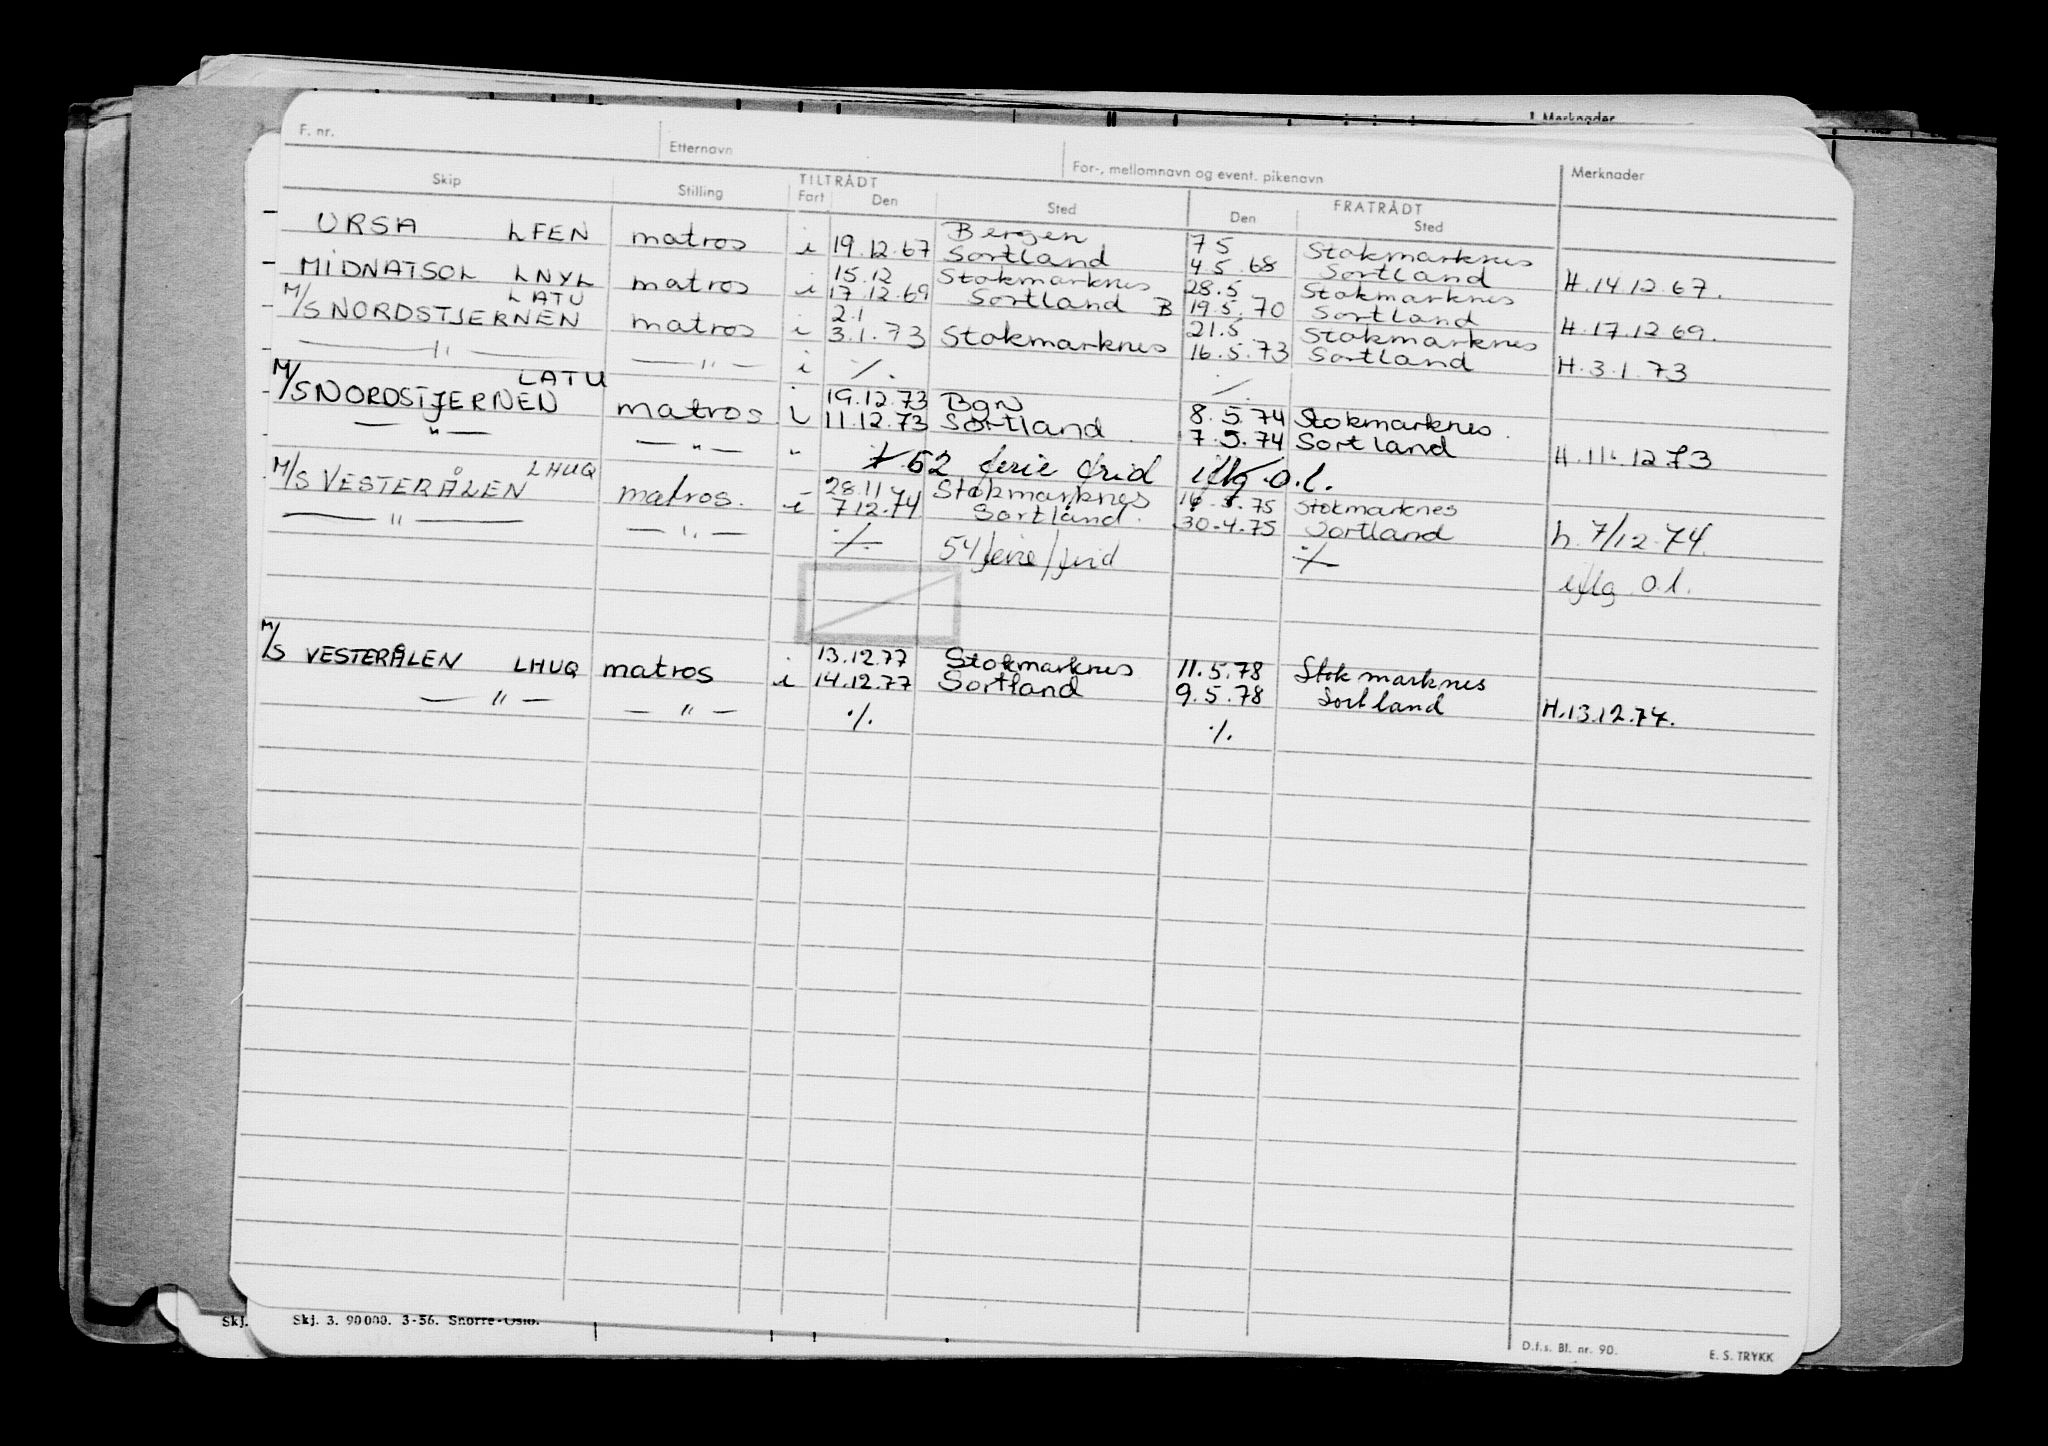 Merknader
F. nr.
Etternavn
For-, mellomnavn og event. pikenavn
Merknader
Skip
Stilling
TILTRÅDT
Fart
Den
Sted
FRATRÅDT
Den
Sted
URSA LFEN matros i 19.12.67 Bergen Sortland 7 5 4.5.68 Stokmarknes Sortland
MIDNATSOL LNYL matros i 15.12 17.12.69 Stokmarknes Sortland B 28.5 19.5.70 Stokmarknes Sortland H.14 12.67.
M/S NORDSTJERNEN LATU matros i 2.1 3.1.73 Stokmarknes 21.5 16.5.73 Stokmarknes Sortland H.17.12 69.
— " — — " — i ./. ./. H.3.1.73
M/S NORDSTJERNEN LATU matros i 19.12.73 11.12.73 Bgn Sortland 8.5.74 7.5.74 Stokmarknes. Sortland
— " — — " — " 62 ferie frid iflg. o.l. H.11.12 73
M/S VESTERÅLEN LHUQ matros. i 28.11 7.12.74 Stokmarknes Sortland. 5.75 30.4.75 Stokmarknes Sortland
— " — — " — ./. 54 ferie/frid ./. h. 7/12.74.
iflg. o.l.
M/S VESTERÅLEN LHUQ matros i 13.12.77 14.12.77 Stokmarknes Sortland 11.5.78 9.5.78 Stokmarknes Sortland
— " — — " — ./. ./. H.13.12.74.
Skj.
Skj. 3. 90000. 3-56. Snorre-Oslo.
D.f.s. Bl. nr. 90.
E. S. TRYKK